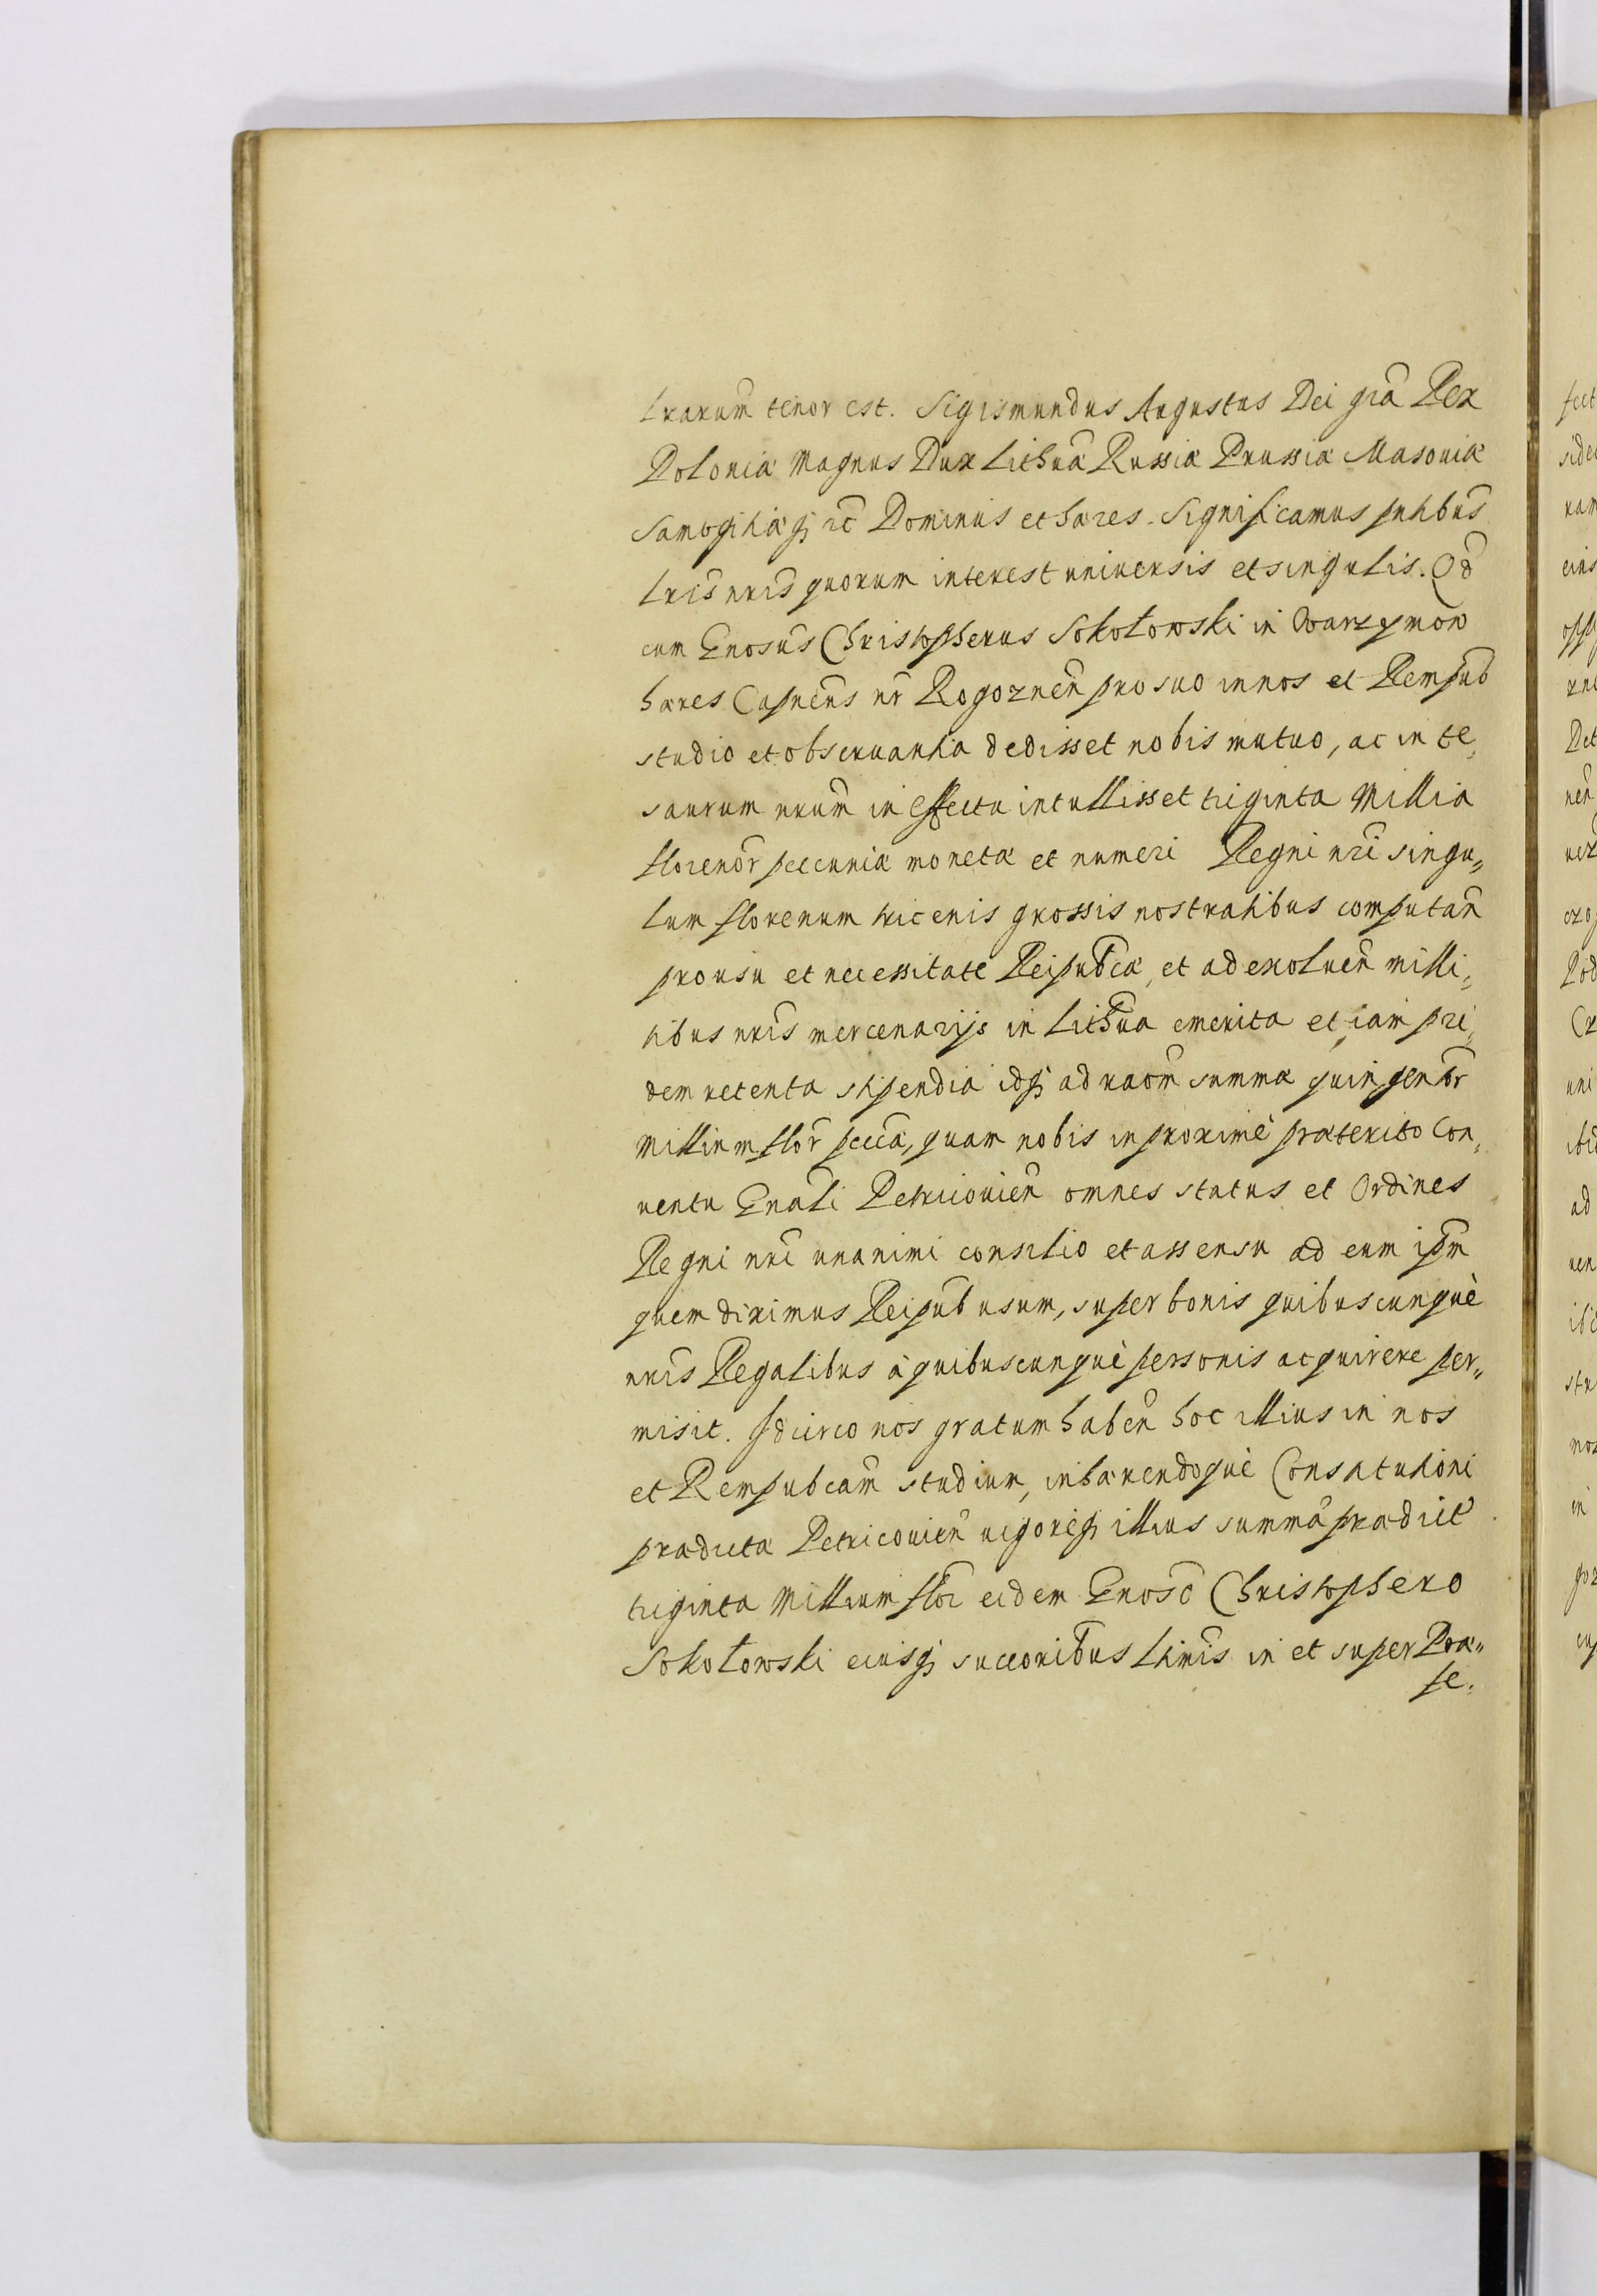 Lrarum̃ tenor est. Sigismundus Augustus Dei grã Rex
Poloniæ Magnus Dux Lithuã Russiæ Prussiæ Masoviæ
Samogitiæq; ẽc Dominus et hæres. Significamus pñtibus
Lr̃is nr̃is quorum interest universis et singulis. Qd̃
cum Gñosus Christopherus Sokołowski in Warzymow
hæres Capneus̃ nr̃ Rogoznen̄ pro suo in nos et Rempub̃
studio et observantia dedisset nobis mutuo, ac in te,
saurum nrum̃ in effectu intullisset triginta Millia
florenor̃ peccuniæ monetæ et numeri Regni nr̃i singu„
lum florenum tricenis grossis nostratibus computan̄
pro usu et necessitate Reipub̃cæ, et ad exoluen̄ milli,
tibus nr̃is mercenarijs in Lithũa emerita et iam pri,
dem retenta stipendia idq; ad raõm summæ quingentor̃
Millium flor̃ pecc̃æ, quam nobis in proximè præterito Con,
uentu Gnãli Petricouien̄ omnes status et Ordines
Regni nr̃i unanimi consilio et assensu ad eum ip̃m
quem diximus Reipub̃ usum, super bonis quibuscunquè
nr̃is Regalibus à quibuscunquè personis acquirere per„
misit. Idcirco nos gratum haben̄ hoc illius in nos
et Rempubcam̃ studium, inhærendoquè Constitutioni
prædictæ Petricouien̄ uigoreq; illius summã prædict̃
triginta Millium flor̃ eidem Gños̃o Christophero
Sokołowski eiusq; succõribus Ltimis̃ in et super Præ„
fe.